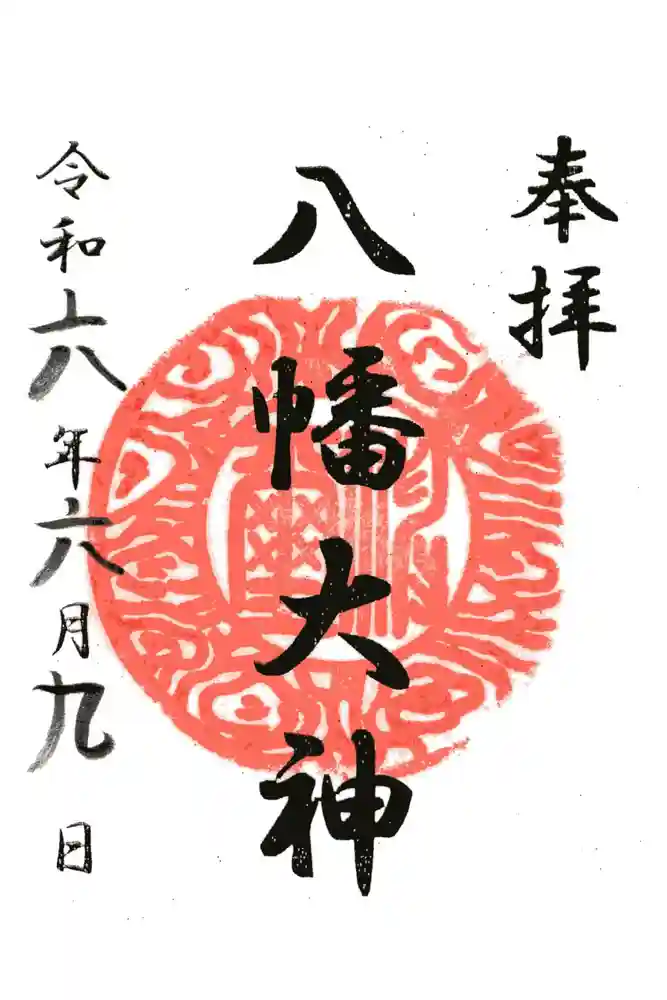 奉拝
八幡大神
令和六年六月九日